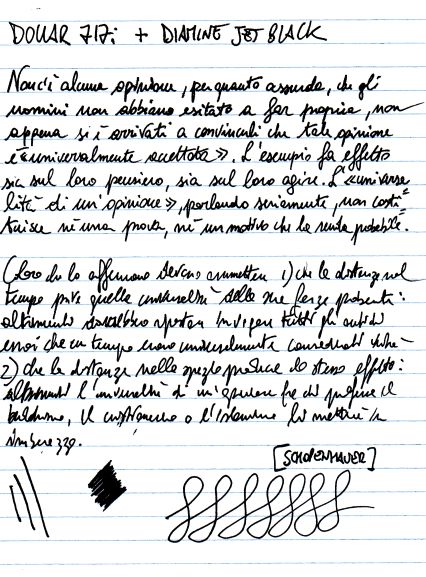 DOLLAR 717i + DIAMINE JET BLACK
Non c'è alcuna opinione, per quanto assurda, che gli
uomini non abbiano esitato a far propria, non
appena si è arrivati a convincerli che tale opinione
è «universalmente accettata». L'esempio fa effetto
sia sul loro pensiero, sia sul loro agire. L'«universa
lità di un'opinione», parlando seriamente, non costi=
tuisce né una prova, né un motivo che la renda probabile.
Coloro che lo affermano devono ammettere 1) che la distanza nel
tempo priva quella universalità della sua forza probante:
altrimenti dovrebbero riportare in vigore tutti gli antichi
errori che un tempo erano universalmente considerati verità
2) che la distanza nello spazio produce lo stesso effetto:
altrimenti l'universalità di un'opinione fra chi professa il
buddismo, il cristianesimo o l'islamismo li metterà in
imbarazzo.
[SCHOPENHAUER]